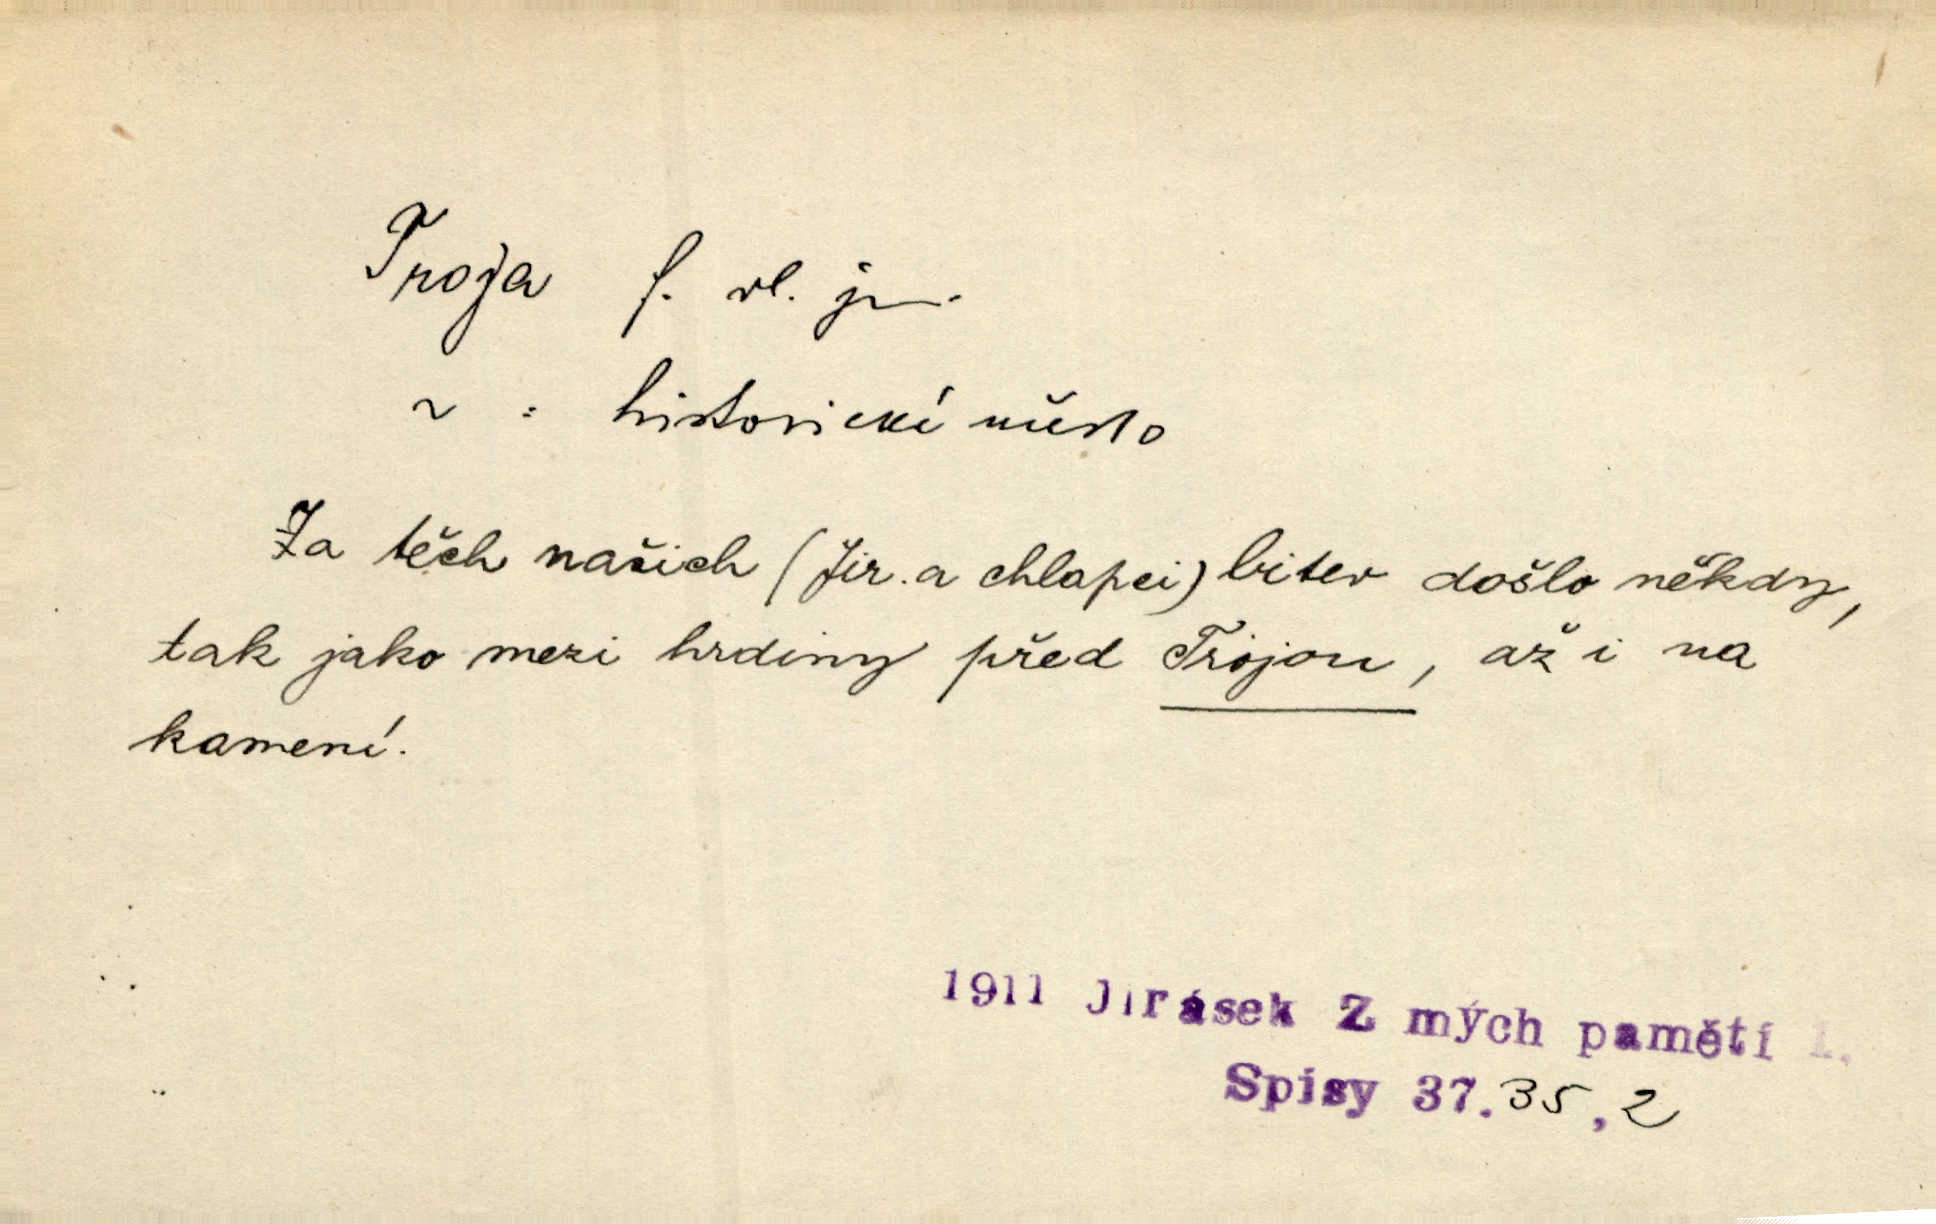 Troja f. vl. jm.
~ : historické město
Za těch našich (Jir. a chlapci) bitev došlo někdy,
tak jako mezi hrdiny před Trojou, až i na
kamení.
1911 Jirásek Z mých pamětí 1.
Spisy 37.35,2